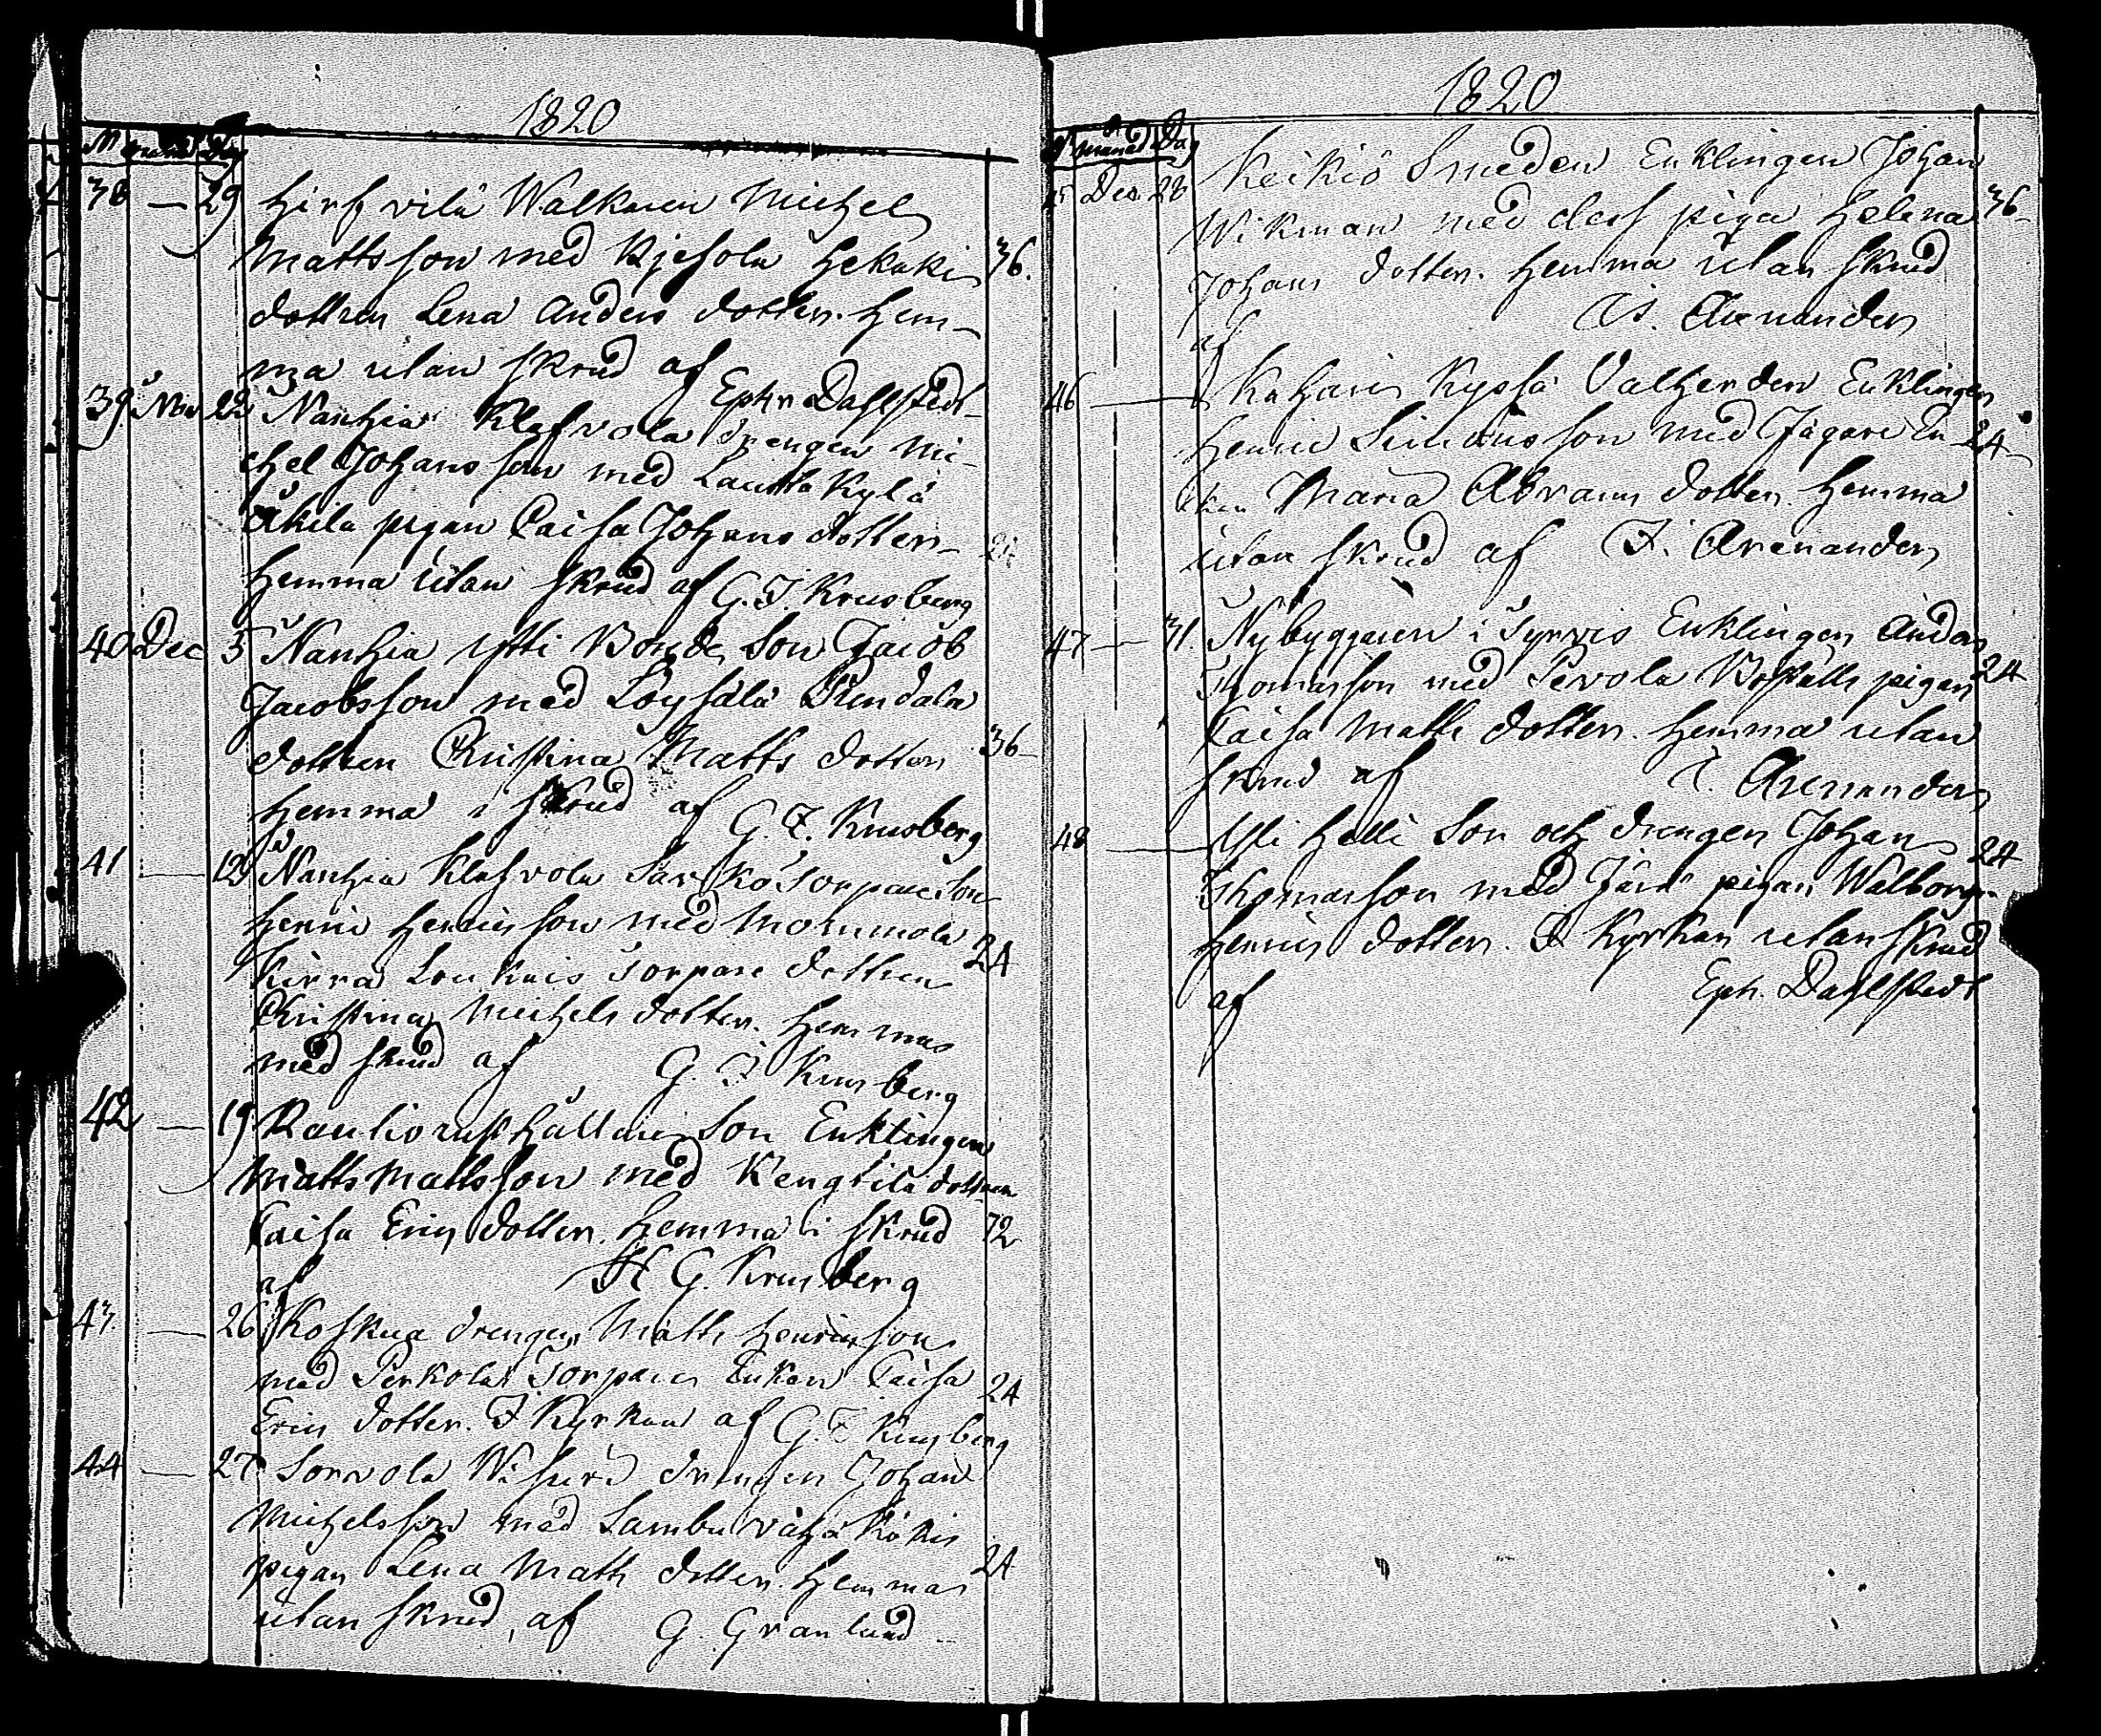 1820
N månad Dag
38 — 29 Hirfvilä Walkaren Michel
Mattsson med Kjesola Hekaki 36.
dottren Lena Anders dotter. Hem-
ma utan skrud af
Ephr Dahlstedt
39. Nov 22 Nanhia Klafvola drengen Mi-
chel Johansson med Lautta Kylä
Äkila pigan Caisa Johans dotter 24
Hemma utan skrud af G. F. Krusberg
40 Dec 5 Nanhia Ytti Bonde Son Jacob
Jacobsson med Löysälä
dottren Christina Matts dotter 36
hemma i skrud af G. F. Krusberg
41 — 12 Nanhia Klafvola Särkö Torpare Son
Henric Henricsson med Mommola
Kirra Loukais Torpare dottren 24
Christina Michels dotter. Hemma
med skrud af G. F. Krusberg
42 — 19 Rautio rusthållare Son Enklingen
Matts Mattsson med Kengtilä dottren
Caisa Erics dotter. Hemma i skrud 72
af H G. Krusberg
43. — 26 Koskua drengen Matts Henricsson
med Perkola Torpare Enkan Caisa 24
Erics dotter. I Kyrkan af G. F. Krusberg
44 — 27 Sorvola Wisuri drengen Johan
Michelsson med Sambu vähä Kökis
pigan Lena Matts dotter. Hemma 24
utan skrud, af G. Granlund
1820
N månad Dag
45 Dec 28 Keikiö Smeden Enklingen Johan
Wikman med dess piga Helena 36
Johans dotter. Hemma utan skrud
af Arenander
46 — Kaharis Kyssä Valherden Enklingen
Henric Simonsson med Jägare En- 24
kan Maria Abrams dotter. Hemma
utan skrud af F. Arenander
47 — 31. Nybyggaren i Syrvis Enklingen Anders
Thomasson med Pevola Boställs pigan 24
Caisa Matts dotter. Hemma utan
skrud af F. Arenander
48 — Yli Helli Son och drengen Johan 24
Thomasson med Järä pigan Walborg
Henrics dotter. I Kyrkan utan skrud
af Eph. Dahlstedt